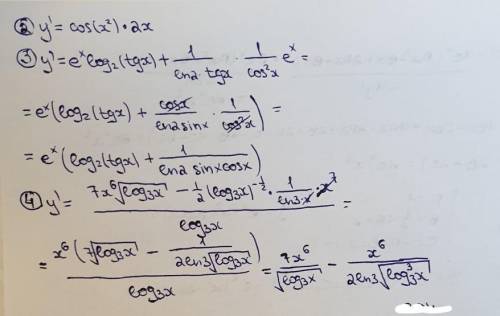 ② y' = cos(x²)·2x
③ y' = eˣ log₂(tgx) + 1/(ln2·tgx) · 1/cos²x eˣ =
= eˣ(log₂(tgx) + cosx/(ln2 sinx) · 1/cos²x) =
= eˣ(log₂(tgx) + 1/(ln2 sinxcosx))
④ y' = (7x⁶√(log₃x) − 1/2(log₃x)^(-1/2) · 1/(ln3·x) · x⁷)/(log₃x) =
= x⁶(7√(log₃x) − 1/(2ln3√(log₃x)))/(log₃x) = 7x⁶/√(log₃x) − x⁶/(2ln3√(log₃³x))